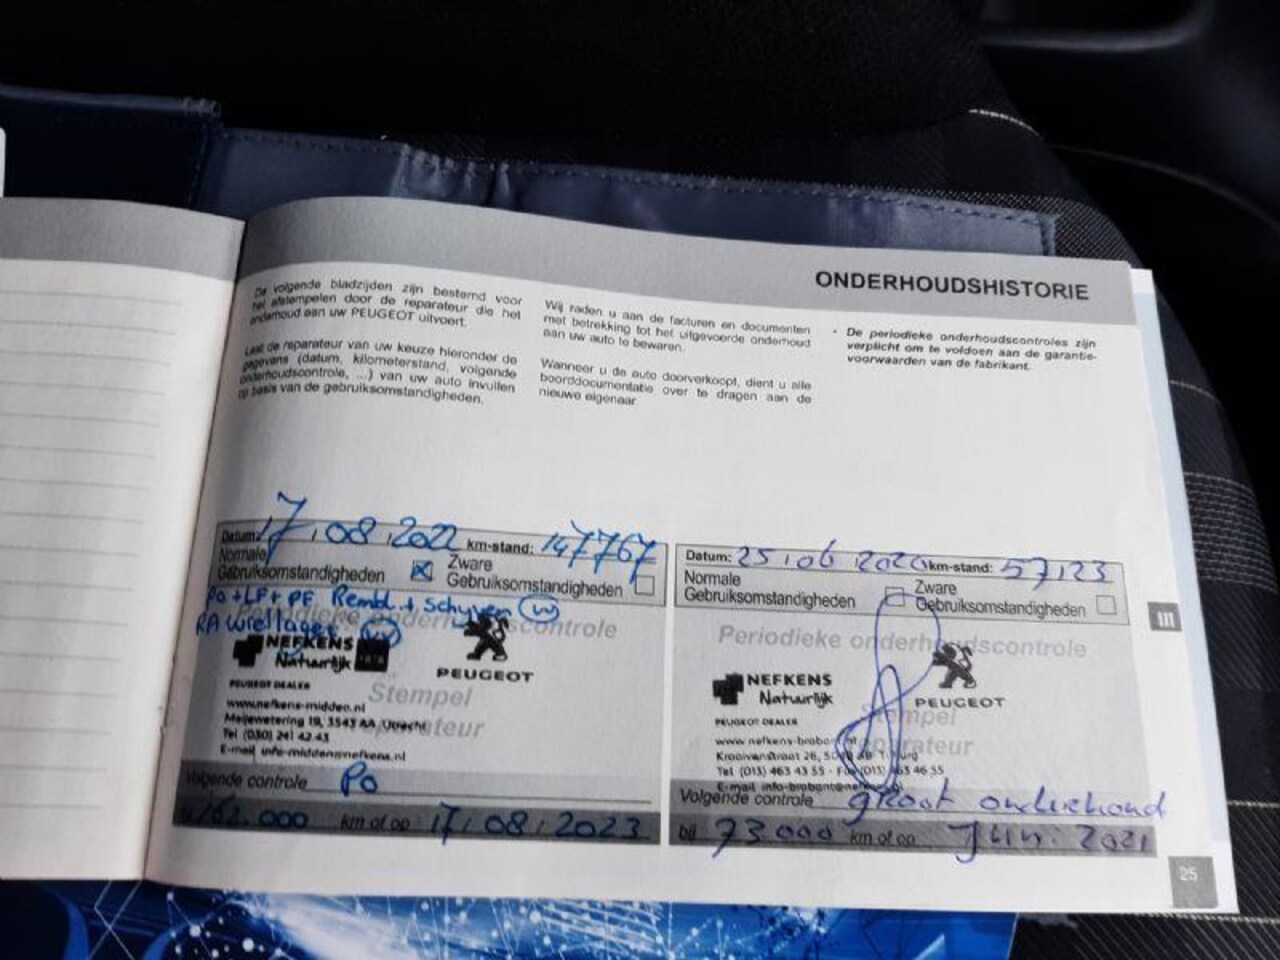 ONDERHOUDSHISTORIE
De volgende bladzijden zijn bestemd voor
het afstempelen door de reparateur die het
onderhoud aan uw PEUGEOT uitvoert.
Laat de reparateur van uw keuze hieronder de
gegevens (datum, kilometerstand, volgende
onderhoudscontrole, ...) van uw auto invullen
op basis van de gebruiksomstandigheden.
Wij raden u aan de facturen en documenten
met betrekking tot het uitgevoerde onderhoud
aan uw auto te bewaren.
Wanneer u de auto doorverkoopt, dient u alle
boorddocumentatie over te dragen aan de
nieuwe eigenaar.
- De periodieke onderhoudscontroles zijn
verplicht om te voldoen aan de garantie-
voorwaarden van de fabrikant.
Datum: 17 08 2022 km-stand: 147767
Normale Zware
Gebruiksomstandigheden Gebruiksomstandigheden
Po + LF + PF Rembl + Schyven (W)
RA wiellager
Periodieke onderhoudscontrole
NEFKENS
Natuurlijk
PEUGEOT
Stempel
PEUGEOT DEALER
www.nefkens-midden.nl
Meijewetering 19, 3543 AA Utrecht
reparateur
Tel (030) 241 42 43
E-mail info-midden@nefkens.nl
Volgende controle Po
km of op 17 08 2023
Datum: 25 06 2020 km-stand: 57123
Normale Zware
Gebruiksomstandigheden Gebruiksomstandigheden
Periodieke onderhoudscontrole
NEFKENS
Natuurlijk
PEUGEOT
Stempel
PEUGEOT DEALER
www.nefkens-brabant.nl
reparateur
Kraaivenstraat 26, Tilburg
Tel (013) 463 43 55 - Fax (013) 463 46 55
E-mail info-brabant@nefkens.nl
Volgende controle groot onderhoud
bij 73000 km of op Juni 2021
III
25